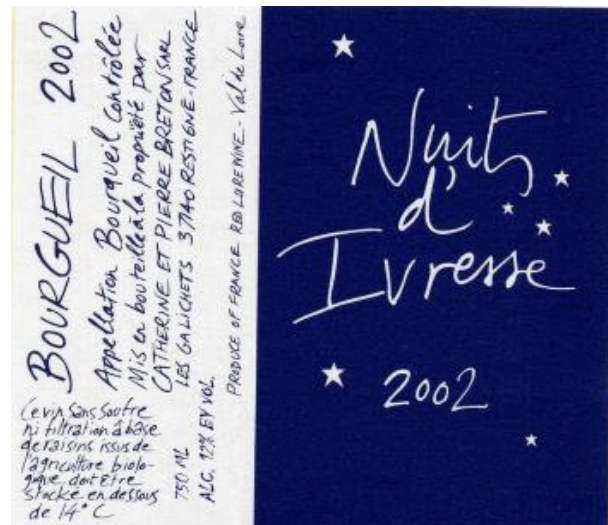 BOURGUEIL 2002
Appellation Bourgueil contrôlée
Mis en bouteille à la propriété par
CATHERINE ET PIERRE BRETON SARL
LES GALICHETS 37140 RESTIGNE-FRANCE
750 ML
ALC. 12% BY VOL
PRODUCE OF FRANCE RED LOIRE WINE - Val de Loire
Ce vin sans soufre
ni filtration à base
de raisins issus de
l'agriculture biolo-
gique doit être
stocké en dessous
de 14° C
Nuits
d'
Ivresse
2002